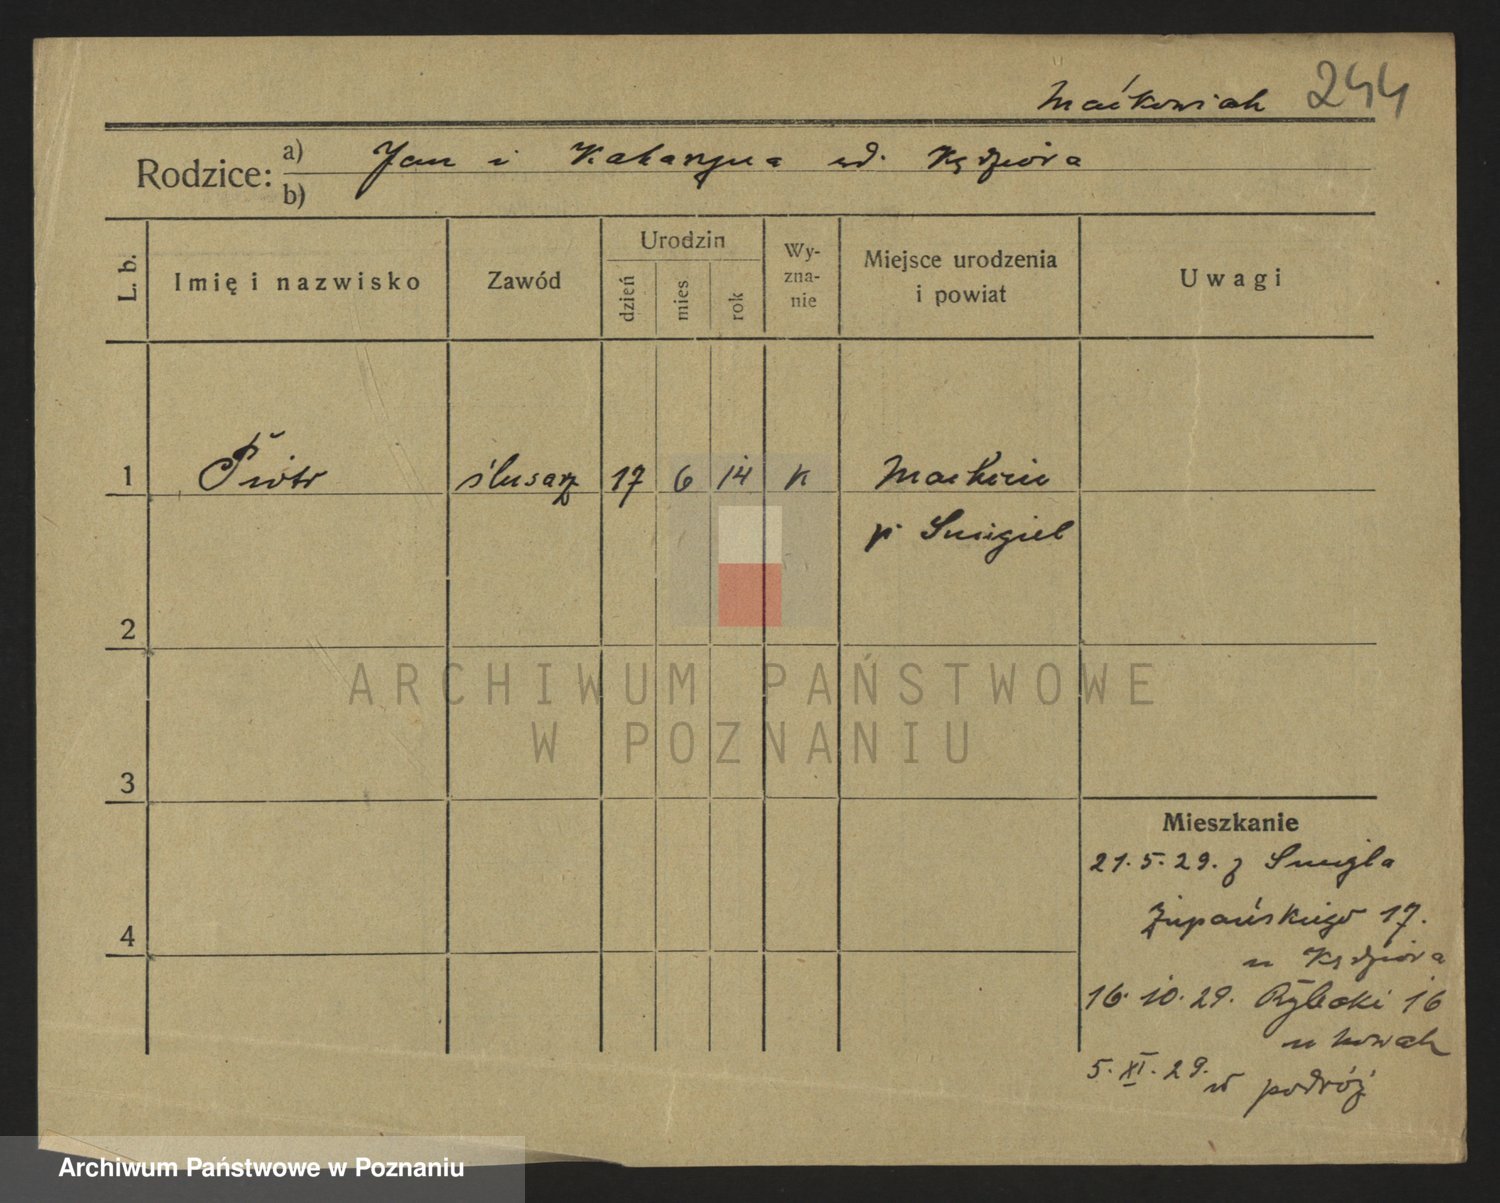 Maćkowiak 244
Rodzice: a) b) Jan i Katarzyna ud. Kędziora
L. b.
Imię i nazwisko
Zawód
Urodzin
dzień
mies
rok
Wy-
zna-
nie
Miejsce urodzenia
i powiat
Uwagi
1 Piotr ślusarz 17 6 14 K
p. Śmigiel
2
3
4
Mieszkanie
21.5.29. z Śmigla
Żupańskiego 17.
u Kędziora
16.10.29. Rybaki 16
u Nowak
5.XI.29. w podróż
ARCHIWUM PAŃSTWOWE
W POZNANIU
Archiwum Państwowe w Poznaniu